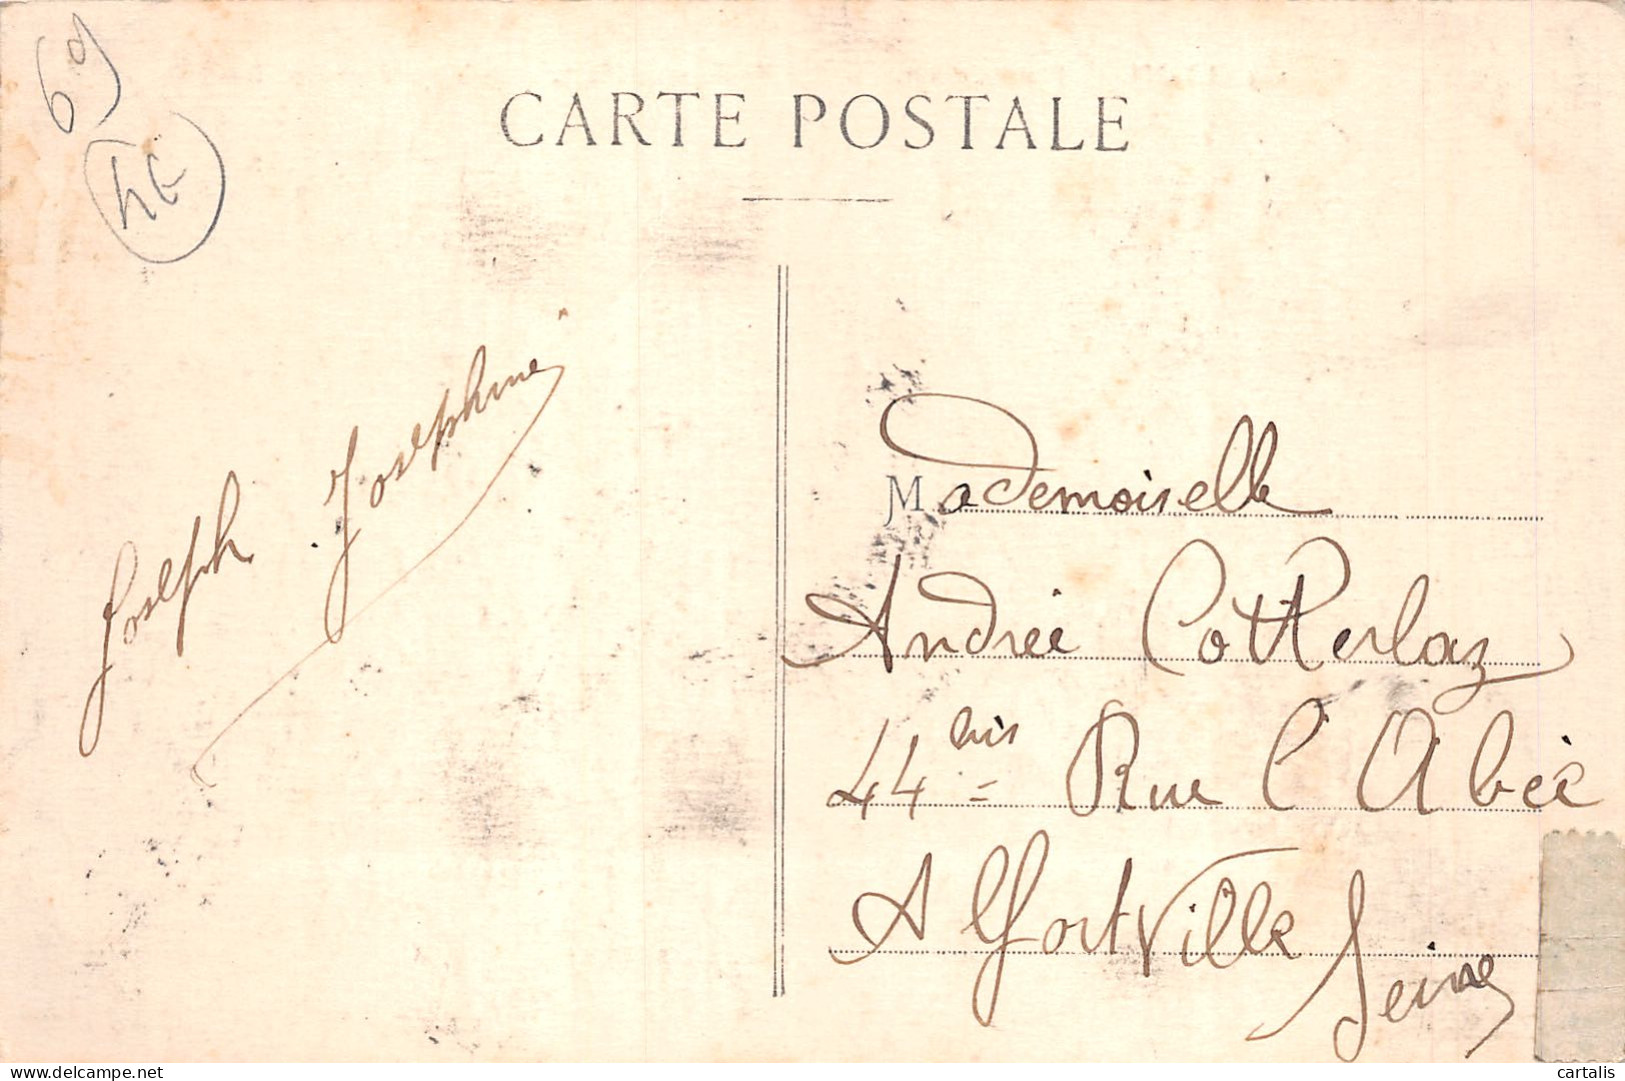 69
4€
CARTE POSTALE
Joseph . Josephine
Mademoiselle
Andrée Cotterlaz
44 bis = Rue l'Abée
Alfortville
Seine
delcampe.net
cartalis